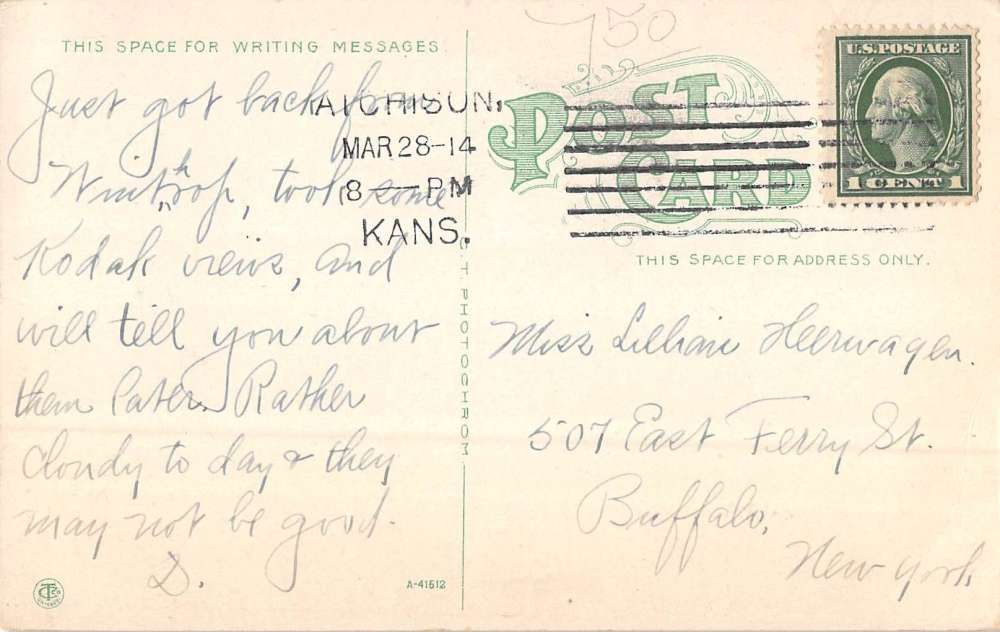 750
THIS SPACE FOR WRITING MESSAGES
Just got back from
Winthrop, took some
Kodak views, and
will tell you about
them later. Rather
cloudy to day & they
may not be good.
S.
ATCHISON,
MAR 28-14
8 — PM
KANS.
POST CARD
U.S. POSTAGE
1 CENT 1
THIS SPACE FOR ADDRESS ONLY.
Miss Lillian Heerwagen.
507 East Ferry St.
Buffalo,
New York
C. T. PHOTOCHROM
A-41612